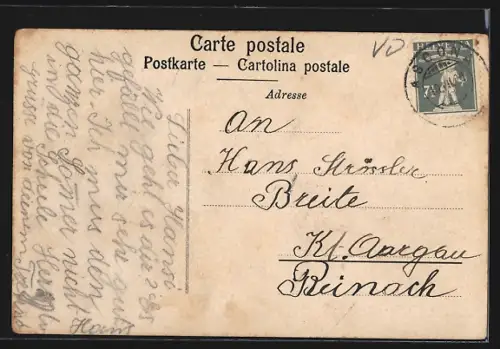 Carte postale
Postkarte — Cartolina postale
Adresse
VD
An
Hans
Breite
Kt. Aargau
Reinach
Lieber Hansi
Wie geht es dir? Es
gefällt mir sehr gut
hier. Ich muss den
ganzen Somer nicht
in die Schule Herzli
grüsse von deinem
Hans